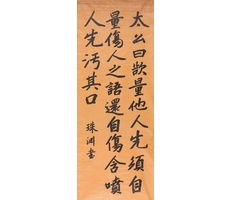 太公曰欲量他人先須自
量傷人之語還自傷含噴
人先汚其口
珠渊書